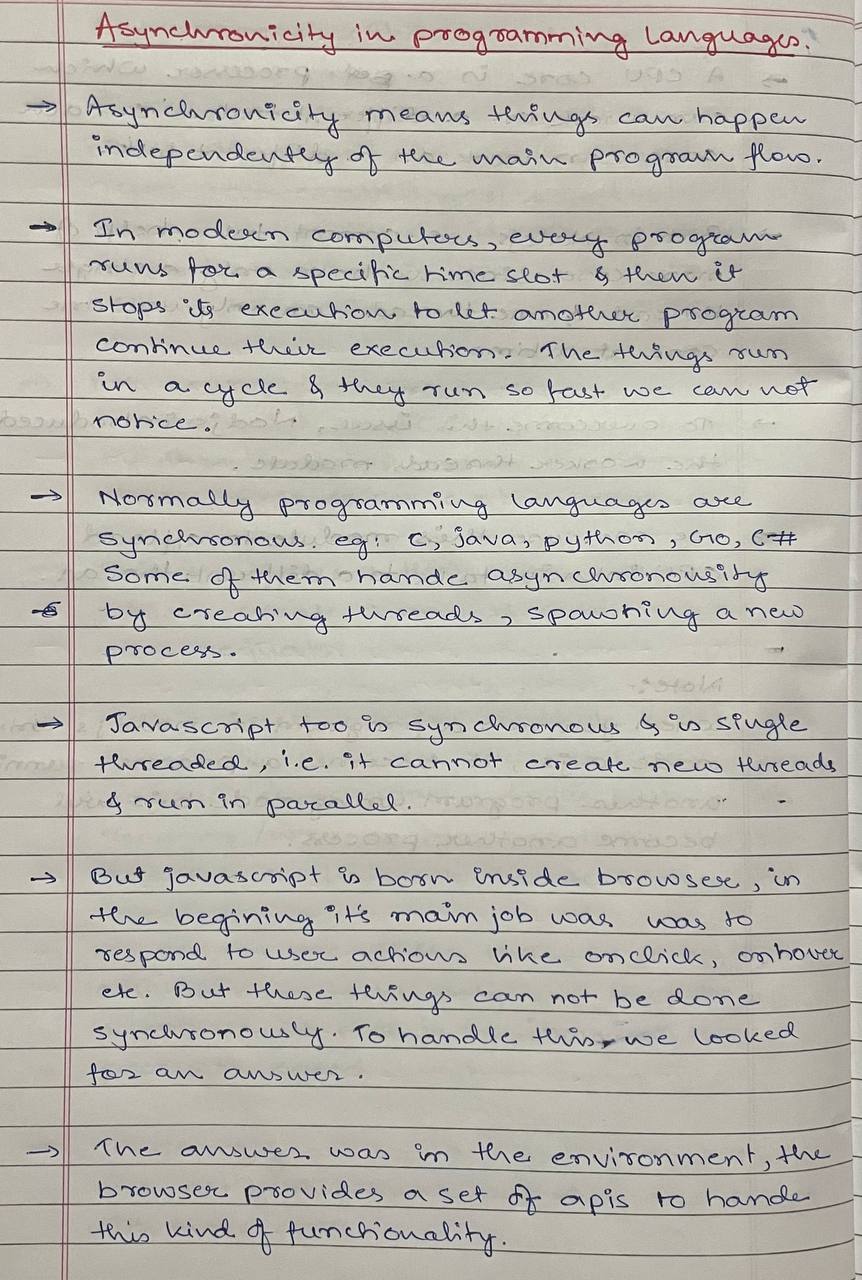 Asynchronicity in programming languages.
→ Asynchronicity means things can happen
independently of the main program flow.
→ In modern computers, every program
runs for a specific time slot & then it
stops its execution to let another program
continue their execution. The things run
in a cycle & they run so fast we can not
notice.
→ Normally programming languages are
synchronous. eg: C, java, python, GO, C#
Some of them hande asynchronousity
by creating threads, spawning a new
process.
→ Javascript too is synchronous & is single
threaded, i.e. it cannot create new threads
& run in parallel.
→ But javascript is born inside browser, in
the begining it's main job was was to
respond to user actions like onclick, onhover
etc. But these things can not be done
synchronously. To handle this, we looked
for an answer.
→ The answer was in the environment, the
browser provides a set of apis to hande
this kind of functionality.